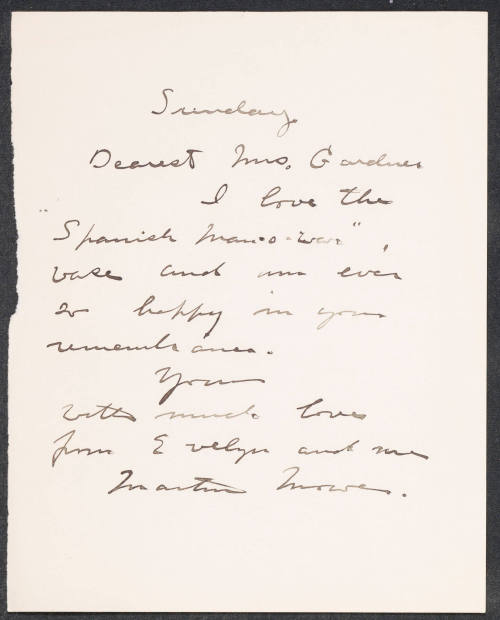 Sunday
Dearest Mrs. Gardner
I love the
"Spanish Man-o-war"
vase and am ever
so happy in your
remembrance.
Yours
with much love
from Evelyn and me
Martin Mower.